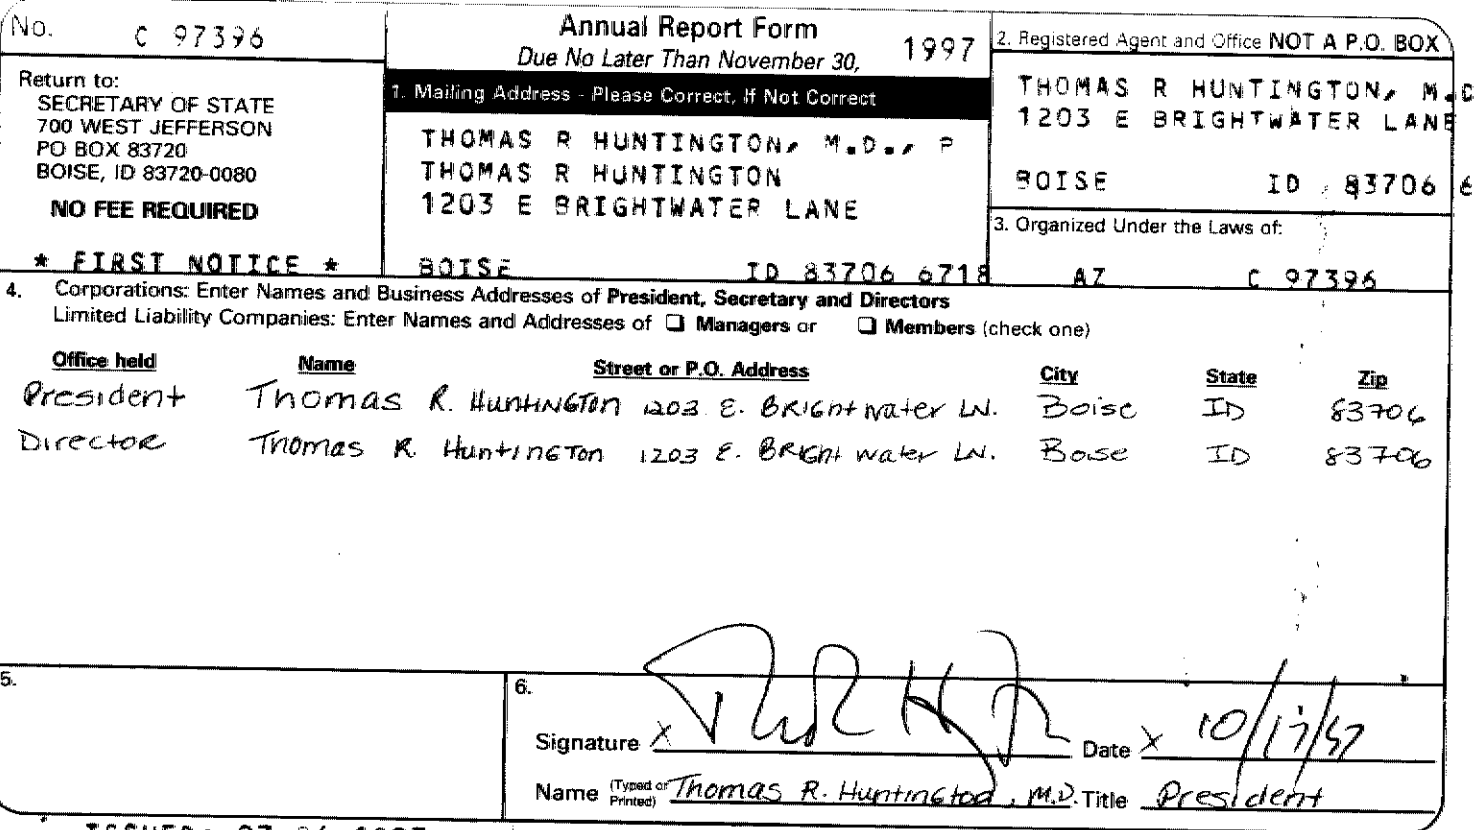 No. C 97396
Return to:
SECRETARY OF STATE
700 WEST JEFFERSON
PO BOX 83720
BOISE, ID 83720-0080
NO FEE REQUIRED
* FIRST NOTICE *
Annual Report Form 1997
Due No Later Than November 30,
1. Mailing Address - Please Correct, If Not Correct
THOMAS R HUNTINGTON, M.D., P
THOMAS R HUNTINGTON
1203 E BRIGHTWATER LANE
BOISE ID 83706 6718
2. Registered Agent and Office NOT A P.O. BOX
THOMAS R HUNTINGTON, M.D
1203 E BRIGHTWATER LANE
BOISE ID 83706 6
3. Organized Under the Laws of:
AZ C 97396
4. Corporations: Enter Names and Business Addresses of President, Secretary and Directors
Limited Liability Companies: Enter Names and Addresses of ❑ Managers or ❑ Members (check one)
Office held Name Street or P.O. Address City State Zip
President Thomas R. Huntington 1203 E. Brightwater Ln. Boise ID 83706
Director Thomas R. Huntington 1203 E. Bright water Ln. Boise ID 83706
5.
6.
Signature X Date X 10/17/97
Name (Typed or Printed) Thomas R. Huntington, M.D. Title President